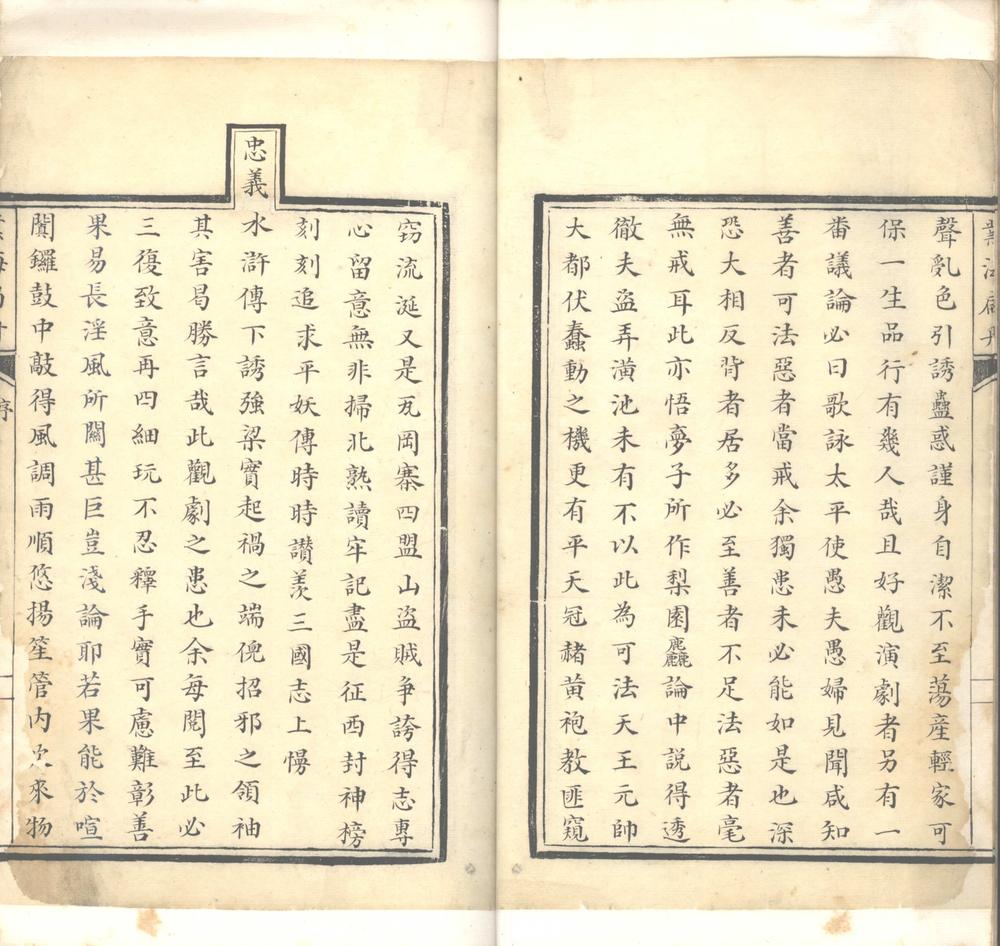 聲亂色引誘蠱惑謹身自潔不至蕩產輕家可
保一生品行有幾人哉且好觀演劇者另有一
畨議論必曰歌詠太平使愚夫愚婦見聞咸知
善者可法惡者當戒余獨患未必能如是也深
恐大相反背者居多必至善者不足法惡者毫
無戒耳此亦悟夢子所作梨園麤論中説得透
徹夫盜弄潢池未有不以此為可法天王元帥
大都伏蠢動之機更有平天冠赭黃袍教匪窺
窃流涎又是瓦岡寨四盟山盜賊争誇得志專
心留意無非掃北熟讀牢記盡是征西封神榜
刻刻追求平妖傳時時讚羨三國志上慢
忠義水滸傳下誘強梁實起禍之端俾招邪之領袖
其害曷勝言哉此觀劇之患也余每閱至此必
三復致意再四細玩不忍釋手實可慮難彰善
果易長淫風所關甚巨豈淺論耶若果能於喧
闐鑼鼓中敲得風調雨順悠揚笙管内來物
序